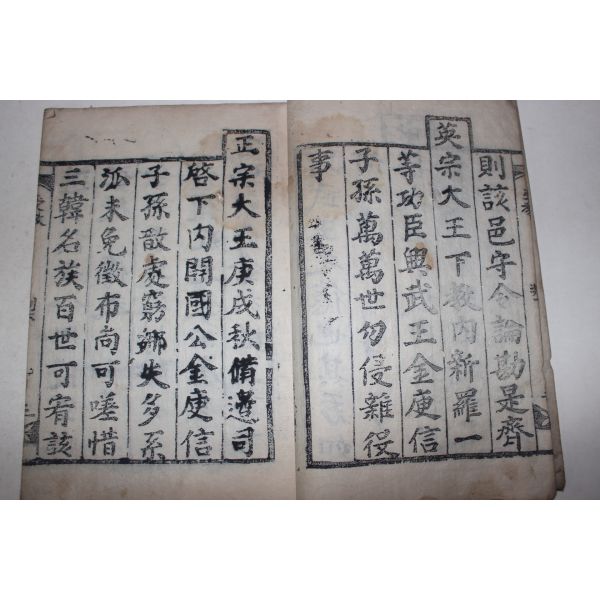 則該邑守令論勘是齊
英宗大王下教內新羅一
等功臣興武王金庾信
子孫萬萬世勿侵雜役
事
正宗大王庚戌秋備邊司
啓下內開國公金庾信
子孫散處窮鄉失多系
派未免徵布尚可嗟惜
三韓名族百世可宥該